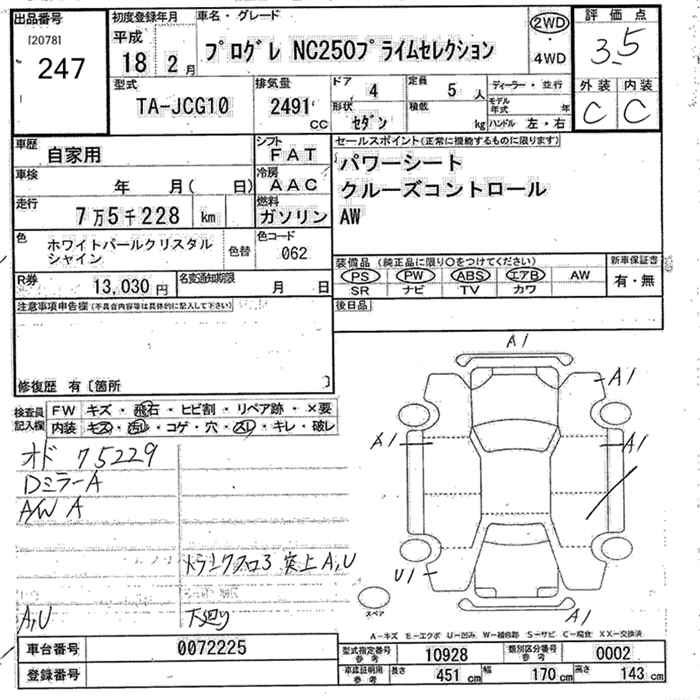 出品番号
[2078]
247
初度登録年月
平成
18 2月
車名・グレード
プログレ NC250プライムセレクション
2WD
・
4WD
評価点
3.5
型式
TA-JCG10
排気量
2491 CC
ドア 4
形状 セダン
定員 5人
積載 kg
ディーラー・並行
モデル年式 年
ハンドル 左・右
外装 内装
C C
車歴
自家用
シフト
FAT
車検
年 月( 日)
冷房
AAC
走行
7万5千228 km
燃料
ガソリン
色
ホワイトパールクリスタル
シャイン
色替
色コード
062
R券
13,030円
名変通知期限
月 日
セールスポイント(正常に機能するものに限ります)
パワーシート
クルーズコントロール
AW
装備品 (純正品に限り○をつけてください)
PS PW ABS エアB AW
SR ナビ TV カワ
新車保証書
有・無
後日品
注意事項申告欄(不具合内容等は具体的に記入して下さい)
修復歴 有〔箇所 〕
検査員
記入欄
FW キズ・飛石・ヒビ割・リペア跡・×要
内装 キズ・汚レ・コゲ・穴・スレ・キレ・破レ
オド 75229
DミラーA
A/W A
トランクフロア
A,U
A,U
下廻り
A1
A1
A1
A1
U1
A1
スペア
A-キズ E-エクボ U-凹み W-補修跡 S-サビ C-腐食 XX-交換済
車台番号 0072225
登録番号
型式指定番号
参考
10928
類別区分番号
参考
0002
車庫証明用
参考
長さ 451cm 幅 170cm 高さ 143cm